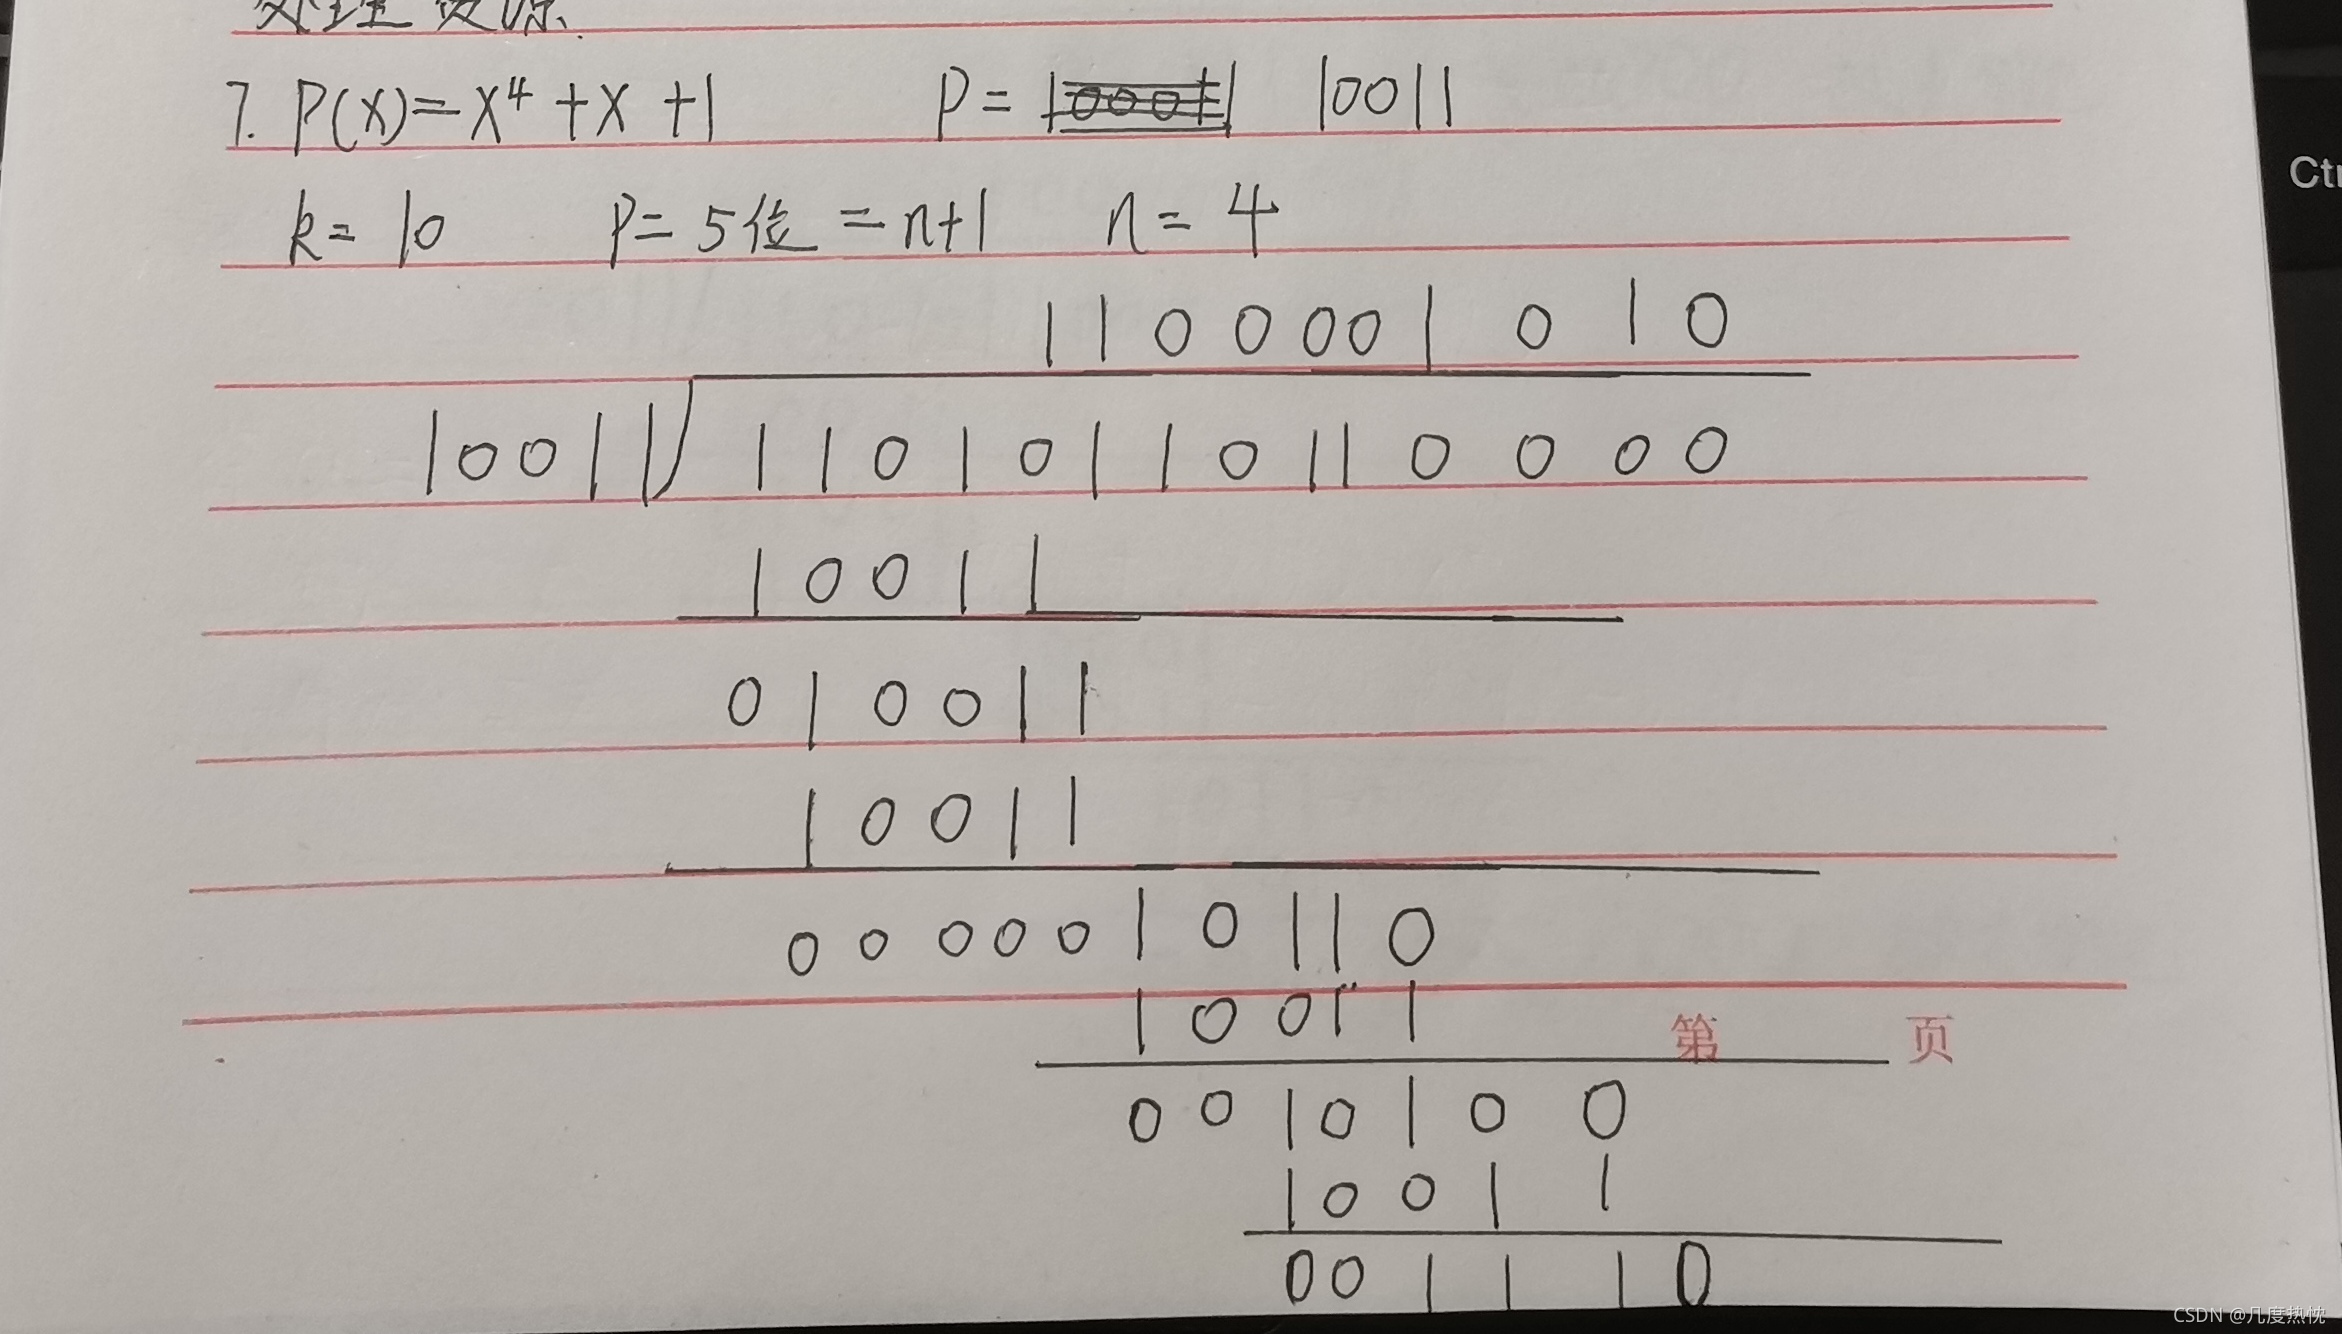 处理资源.
7. P(x)=x⁴+x+1 P= 10011
k=10 P=5位=n+1 n=4
1100001010
10011 11010110110000
10011
010011
10011
0000010110
10011
第 页
0010100
10011
001110
Ctr
CSDN @几度热忱